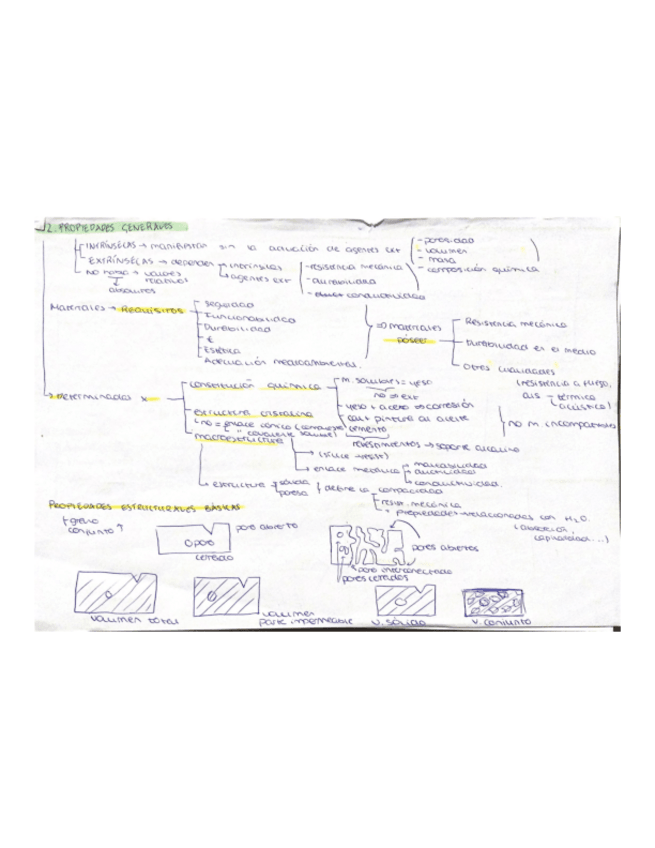 2. PROPIEDADES GENERALES
INTRÍNSECAS → manifiestan sin la actuación de agentes ext
- porosidad
- volumen
- masa
- composición química
EXTRÍNSECAS → dependen
intrínsecas
agentes ext
- resistencia mecánica
- durabilidad
- conductividad
No → valores relativos
absolutos
Materiales → REQUISITOS
Seguridad
Funcionabilidad
Durabilidad
€
Estética
Adecuación medioambiental.
=> materiales
poseer
Resistencia mecánica
Durabilidad en el medio
Otras cualidades
(resistencia a fuego,
ais térmica
acústica)
no m incompatibles
Determinadas x
constitución química
m. solubles = yeso
no => ext
yeso + acero => corrosión
cal + pintura al aceite
cemento
estructura cristalina
no = enlace iónico
macroestructura
revestimientos → soporte alcalino
(sílice →resist)
enlace mecánico
maleabilidad
ductilidad
conductividad.
estructura
sólida
porosa
define la compacidad
resist. mecánica
propiedades → relacionadas con H₂O.
(absorción,
capilaridad...)
PROPIEDADES ESTRUCTURALES BÁSICAS
grano
conjunto ↑
poro abierto
poro
cerrado
poros abiertos
poro interconectado
poros cerrados
volumen total
volumen
parte impermeable
v. sólido
v. conjunto